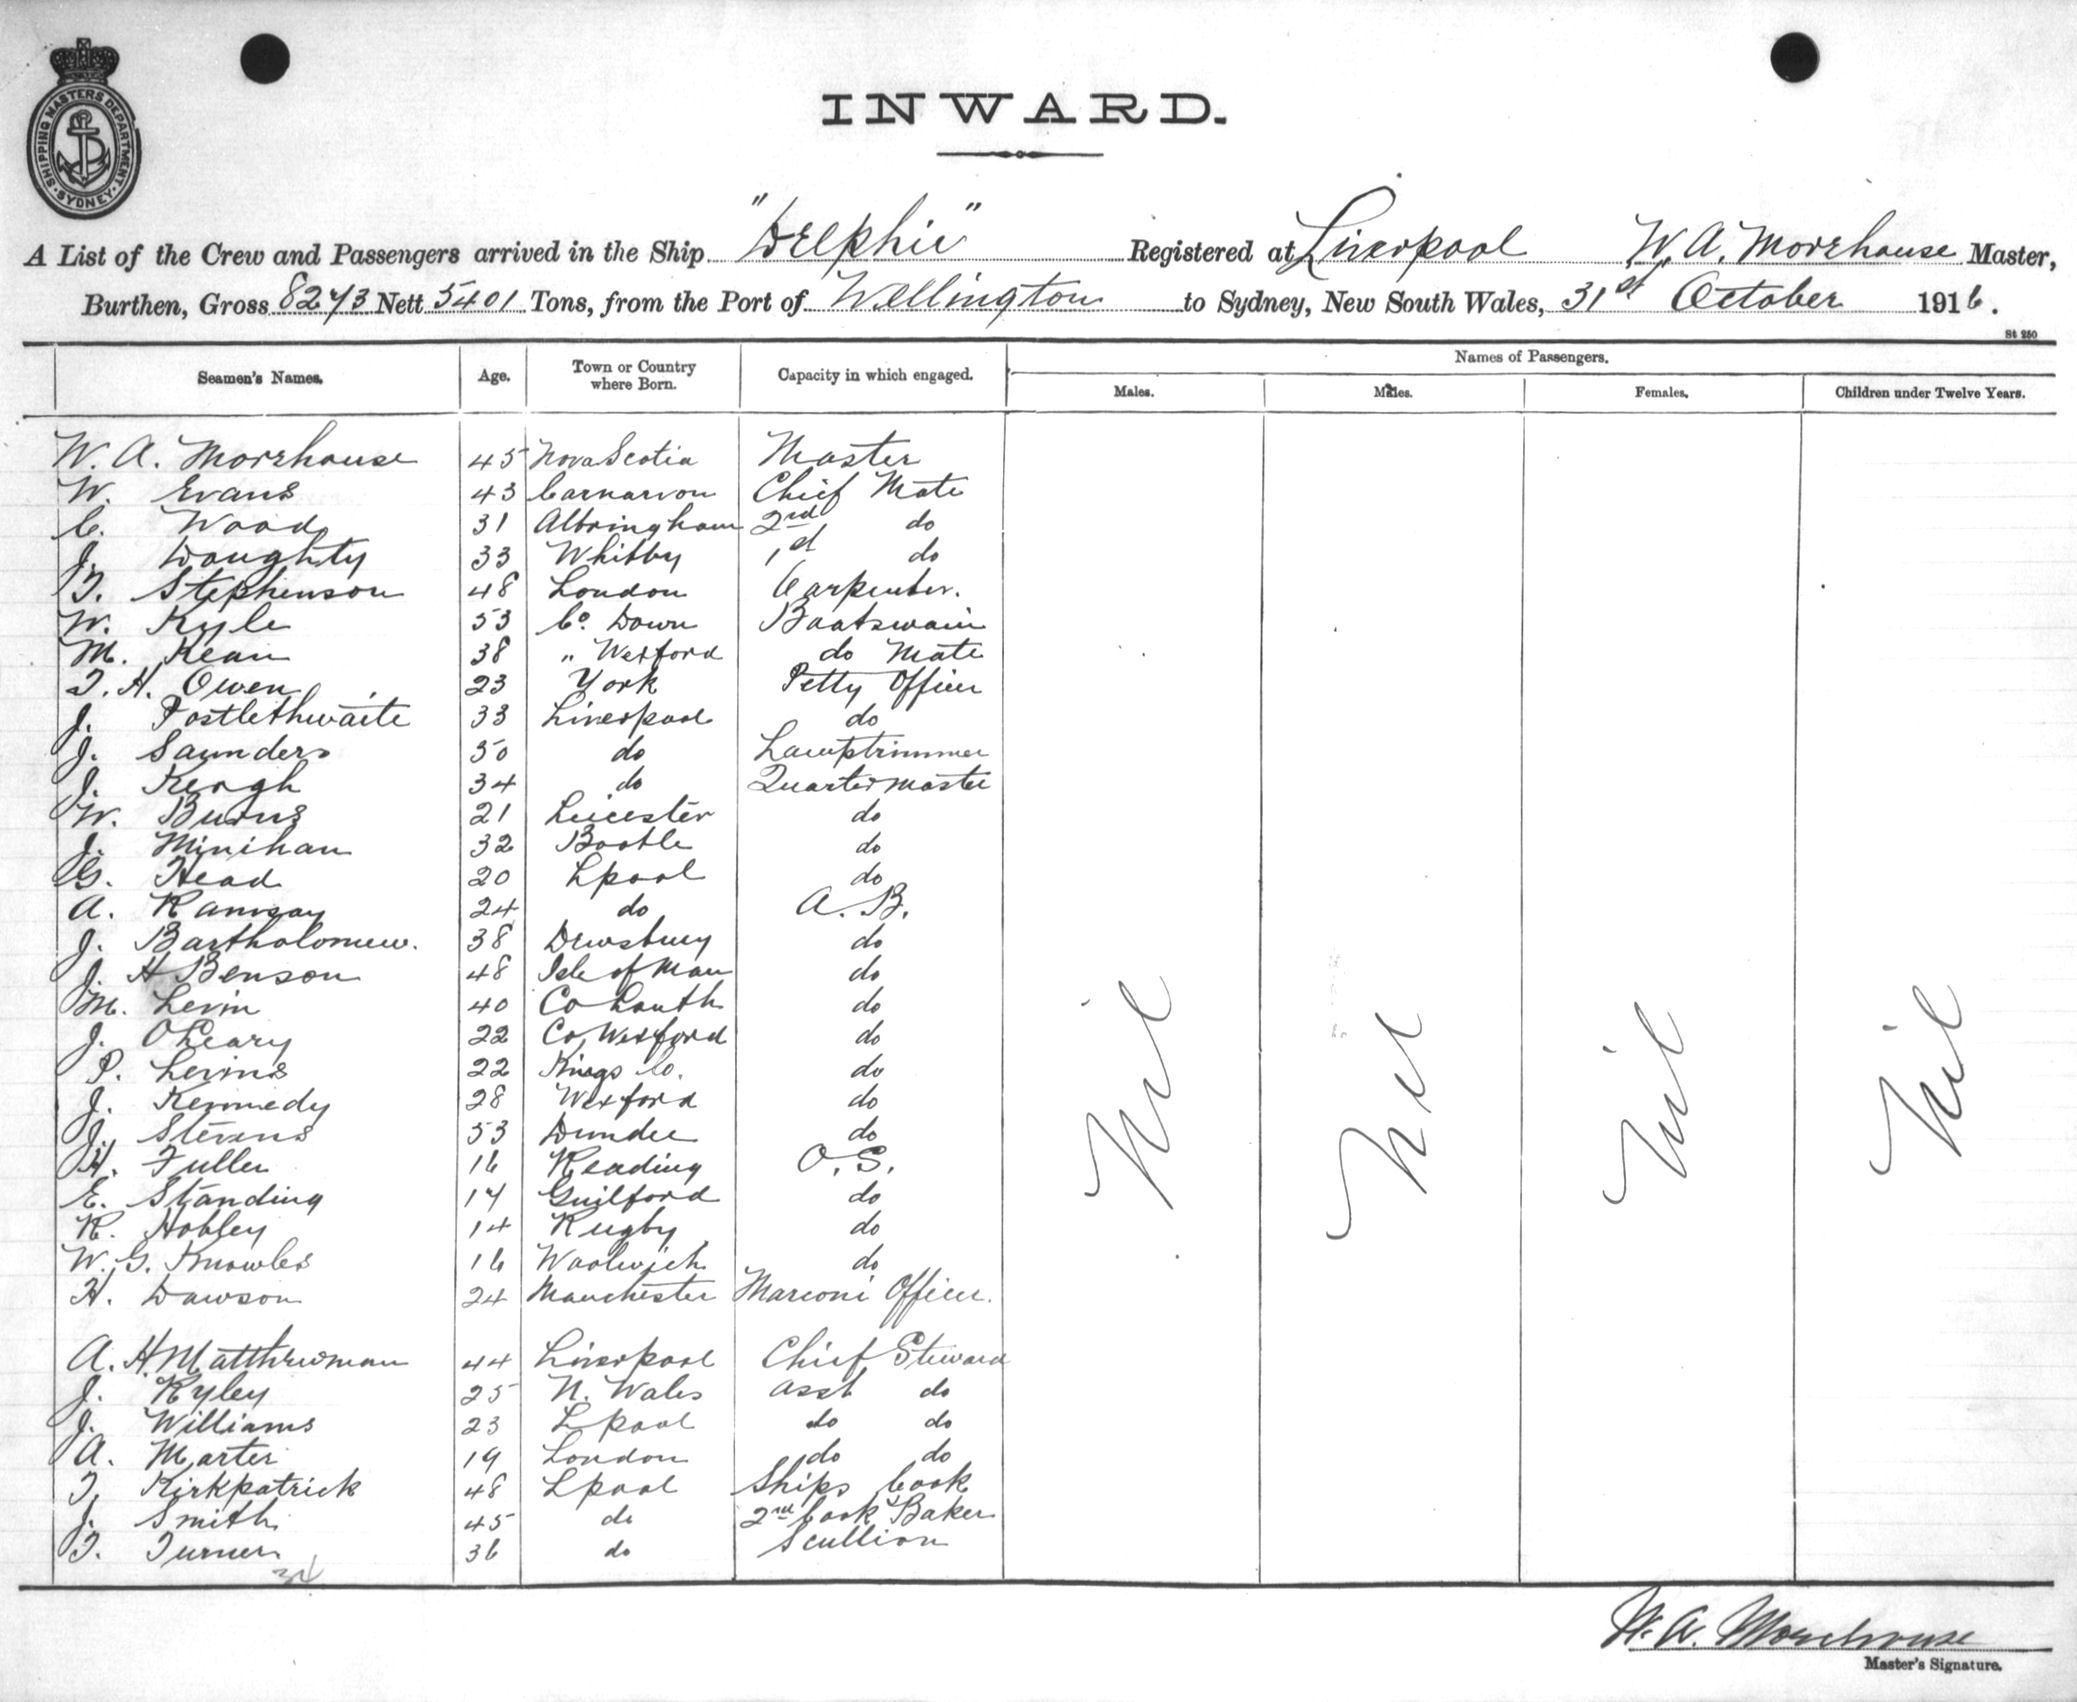 SHIPPING MASTERS DEPARTMENT · SYDNEY ·
INWARD.
A List of the Crew and Passengers arrived in the Ship "Delphic" Registered at Liverpool W. A. Morehouse Master,
Burthen, Gross 8273 Nett 5401 Tons, from the Port of Wellington to Sydney, New South Wales, 31st October 1916.
St 250
Seamen's Names. Age. Town or Country where Born. Capacity in which engaged. Names of Passengers.
Males. Males. Females. Children under Twelve Years.
W. A. Morehouse 45 Nova Scotia Master
W. Evans 43 Carnarvon Chief Mate
C. Wood 31 Altringham 2nd do
J. Doughty 33 Whitby 1st do
T. Stephenson 48 London Carpenter.
W. Kyle 53 Co. Down Boatswain
M. Kean 38 " Wexford do Mate
T. H. Owen 23 York Petty Officer
J. Postlethwaite 33 Liverpool do
J. Saunders 50 do Lamptrimmer
J. Keogh 34 do Quartermaster
W. Burns 21 Leicester do
J. Minihan 32 Bootle do
G. Head 20 Lpool do
A. Ramsay 24 do A. B.
J. Bartholomew. 38 Dewsbury do
J. H Benson 48 Isle of Man do
M. Levin 40 Co Louth do
J. OLeary 22 Co Wexford do
P. Levins 22 Kings Co. do
J. Kennedy 28 Wexford do
J. Stevens 53 Dundee do
H. Fuller 16 Reading O. S.
E. Standing 17 Guilford do
R. Hobley 14 Rugby do
W. G. Knowles 16 Woolwich do
H. Dawson 24 Manchester Marconi Officer.
A. H. Matthewman 44 Liverpool Chief Steward
J. Ryley 25 N. Wales Asst do
J. Williams 23 Lpool do do
A. Marter 19 London do do
T. Kirkpatrick 48 Lpool Ships Cook
J. Smith 45 do 2nd Cook & Baker
T. Turner 36 do Scullion
34
Nil Nil Nil Nil
W. A. Morehouse
Master's Signature.